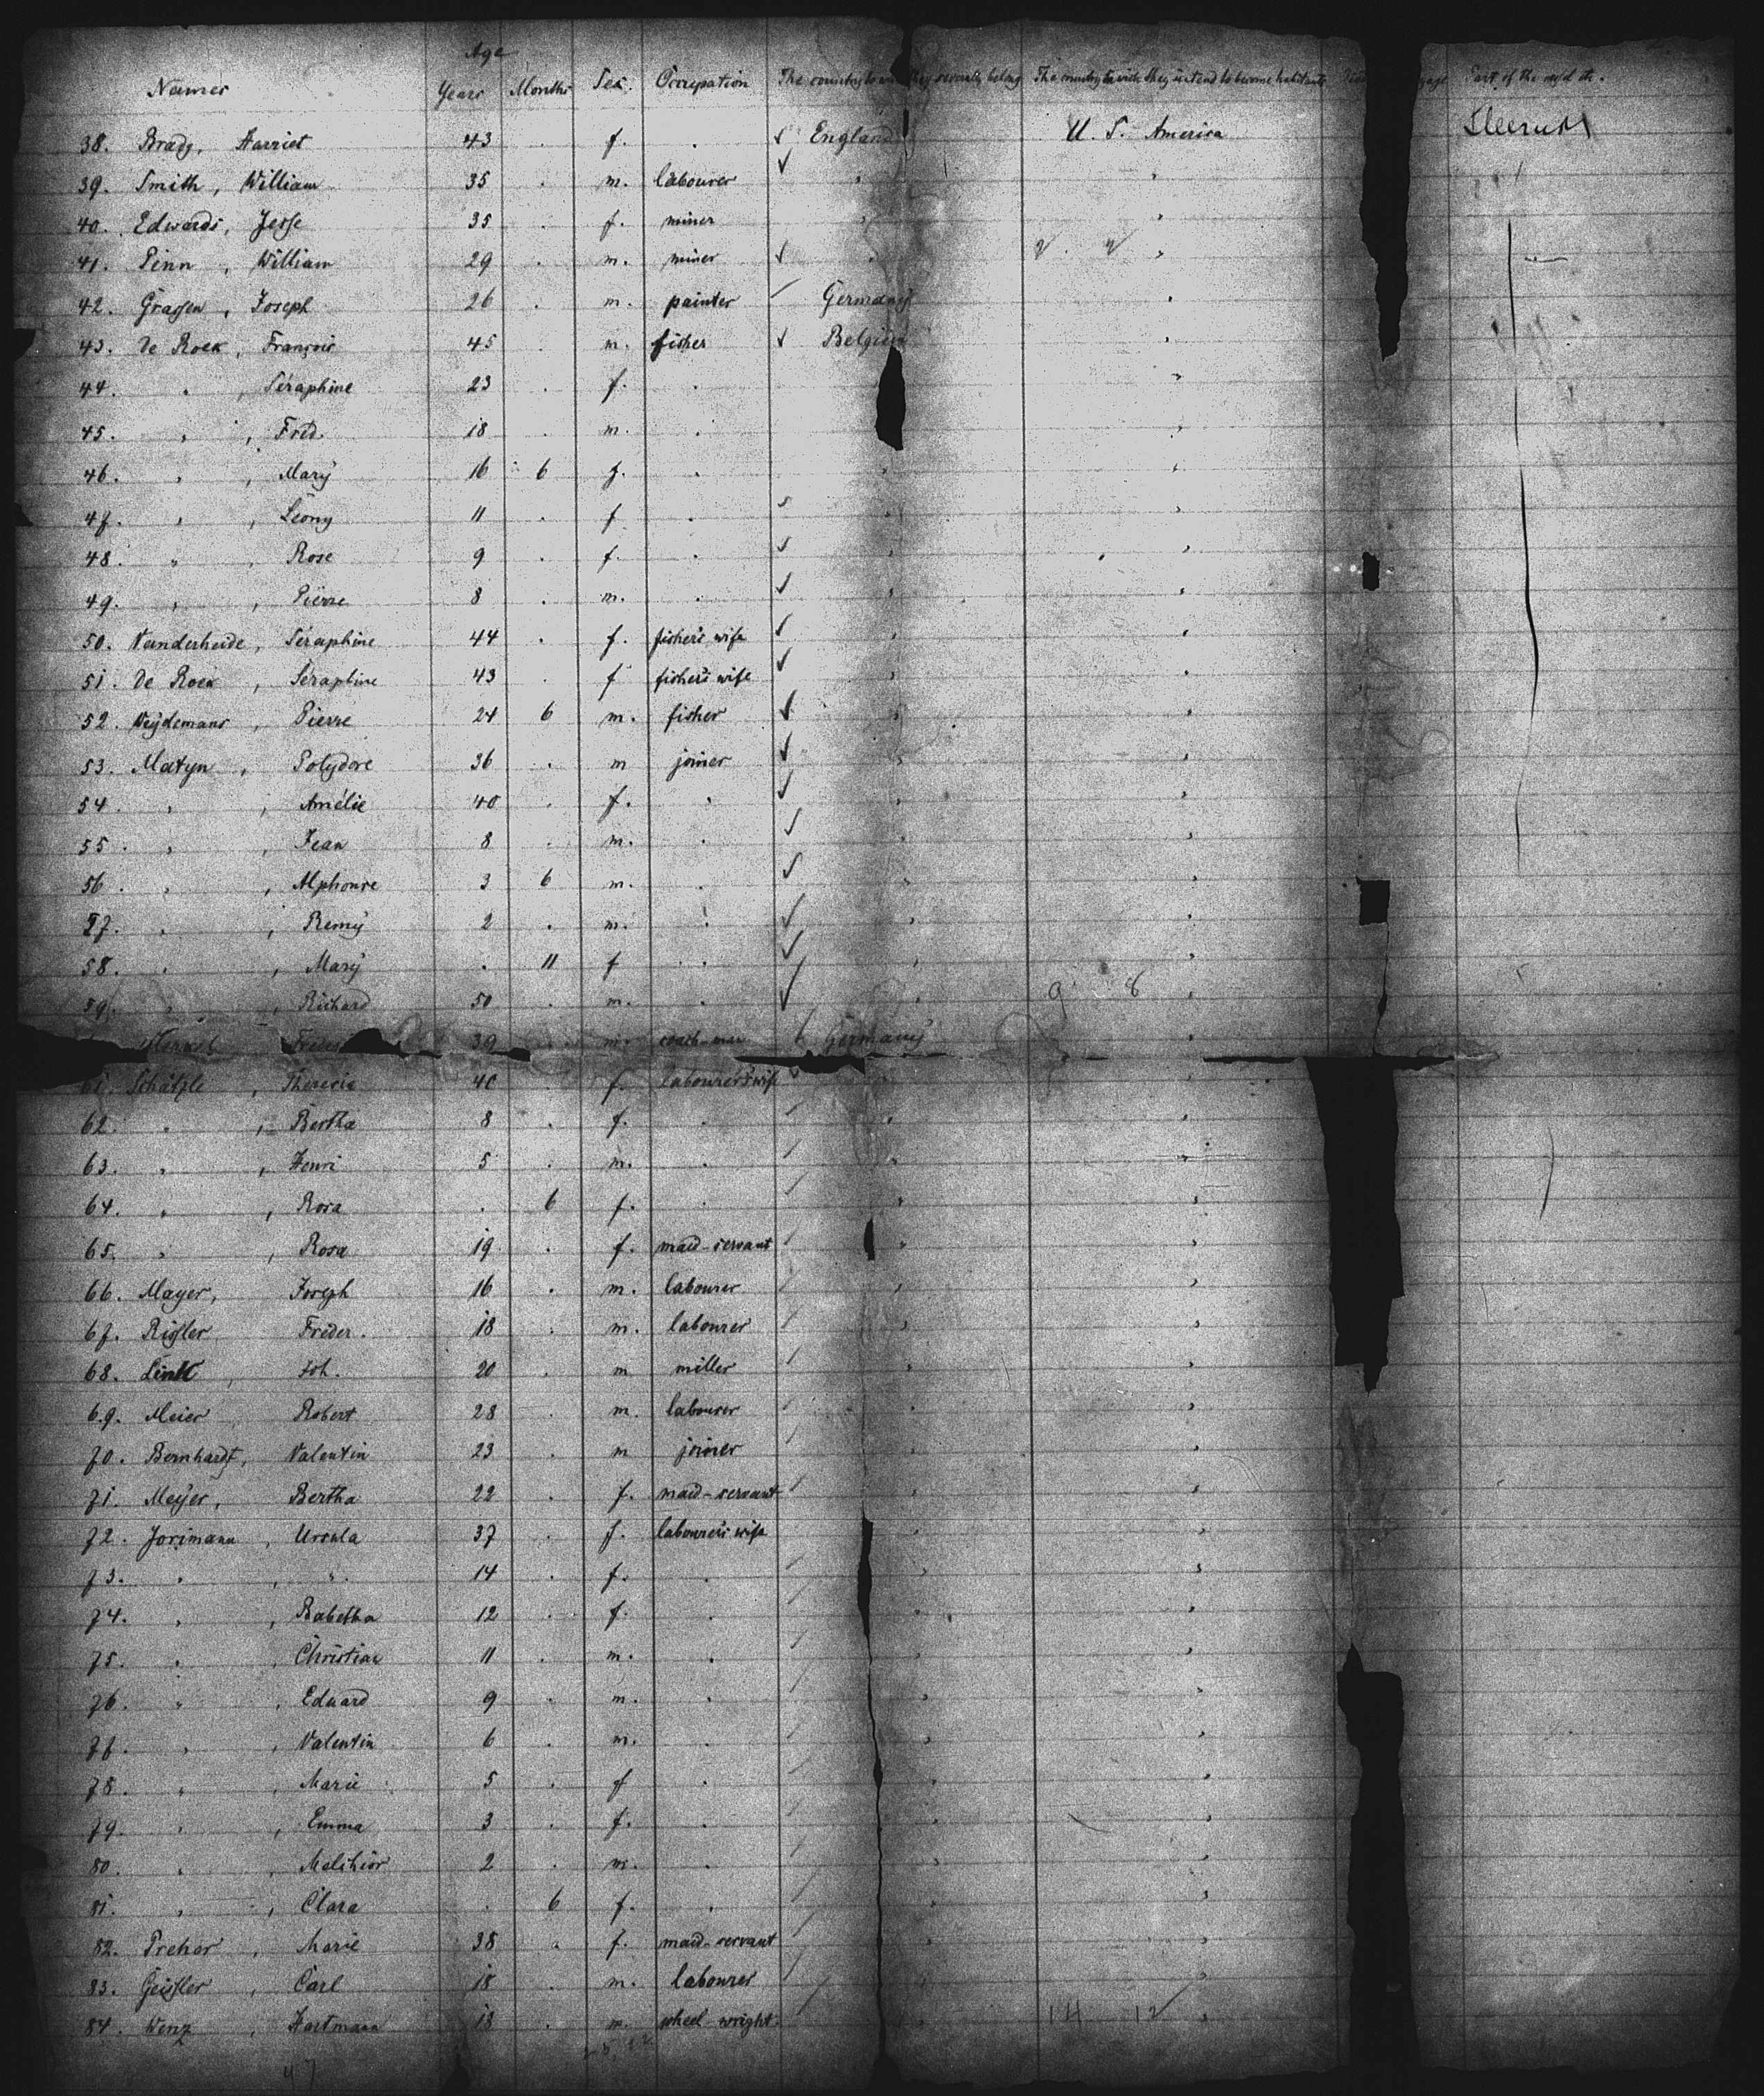 Age
Names Years Months Sex. Occupation The country to they severally belong The country to wich they intend to become habitants Part of the vessel etc.
38. Brady, Harriet 43 . f. . ✓ England U. S. America
39. Smith, William 35 . m. labourer ✓ " "
40. Edwards, Jesse 35 . f. miner " "
41. Penn, William 29 . m. miner ✓ " "
42. Grassen, Joseph 26 . m. painter Germany "
43. De Roek, François 45 . m. fisher ✓ Belgien "
44. " , Séraphine 23 . f. . "
45. " , Fréd. 18 . m. . "
46. " , Mary 16 6 f. . " "
47. " , Leony 11 . f . ✓ " "
48. " , Rose 9 . f. . ✓ " "
49. " , Pierre 8 . m. . ✓ " "
50. Vanderheide, Séraphine 44 . f. fisher's wife ✓ " "
51. De Roek, Séraphine 43 . f fisher's wife ✓ " "
52. Weydemans, Pierre 24 6 m. fisher ✓ " "
53. Matyn, Polydore 36 . m joiner ✓ " "
54. " , Amélie 40 . f. . ✓ " "
55. " , Jean 8 . m. . ✓ " "
56. " , Alphonse 3 6 m. . ✓ " "
57. " , Remy 2 . m. . ✓ " "
58. " , Mary . 11 f . ✓ " "
59. " , Richard 50 . m. . ✓ " 9 8 "
39 . m. coach-man Germany "
61. Schätzle, Theresia 40 . f. labourer's wife "
62. " , Bertha 8 . f. . " "
63. " , Henri 5 . m. . " "
64. " , Rosa . 6 f. . " "
65. " , Rosa 19 . f. maid-servant " "
66. Mayer, Joseph 16 . m. labourer " "
67. Rissler Freder. 18 . m. labourer " "
68. Link, Joh. 20 . m miller " "
69. Meier Robert 28 . m. labourer " "
70. Bernhardt, Valentin 23 . m joiner " "
71. Meyer, Bertha 22 . f. maid-servant " "
72. Jorimann, Ursula 37 . f. labourer's wife " "
73. " , " 14 . f. . " "
74. " , Babetha 12 . f. . " "
75. " , Christian 11 . m. . " "
76. " , Eduard 9 . m. . " "
77. " , Valentin 6 . m. . " "
78. " , Marie 5 . f . " "
79. " , Emma 3 . f. . " "
80. " , Melchior 2 . m. . " "
81. " , Clara . 6 f. . " "
82. Prehar, Marie 38 . f. maid-servant " "
83. Geissler, Carl 18 . m. labourer " "
84. Wenz, Hartmann 18 . m. wheel-wright " 14 12 "
47